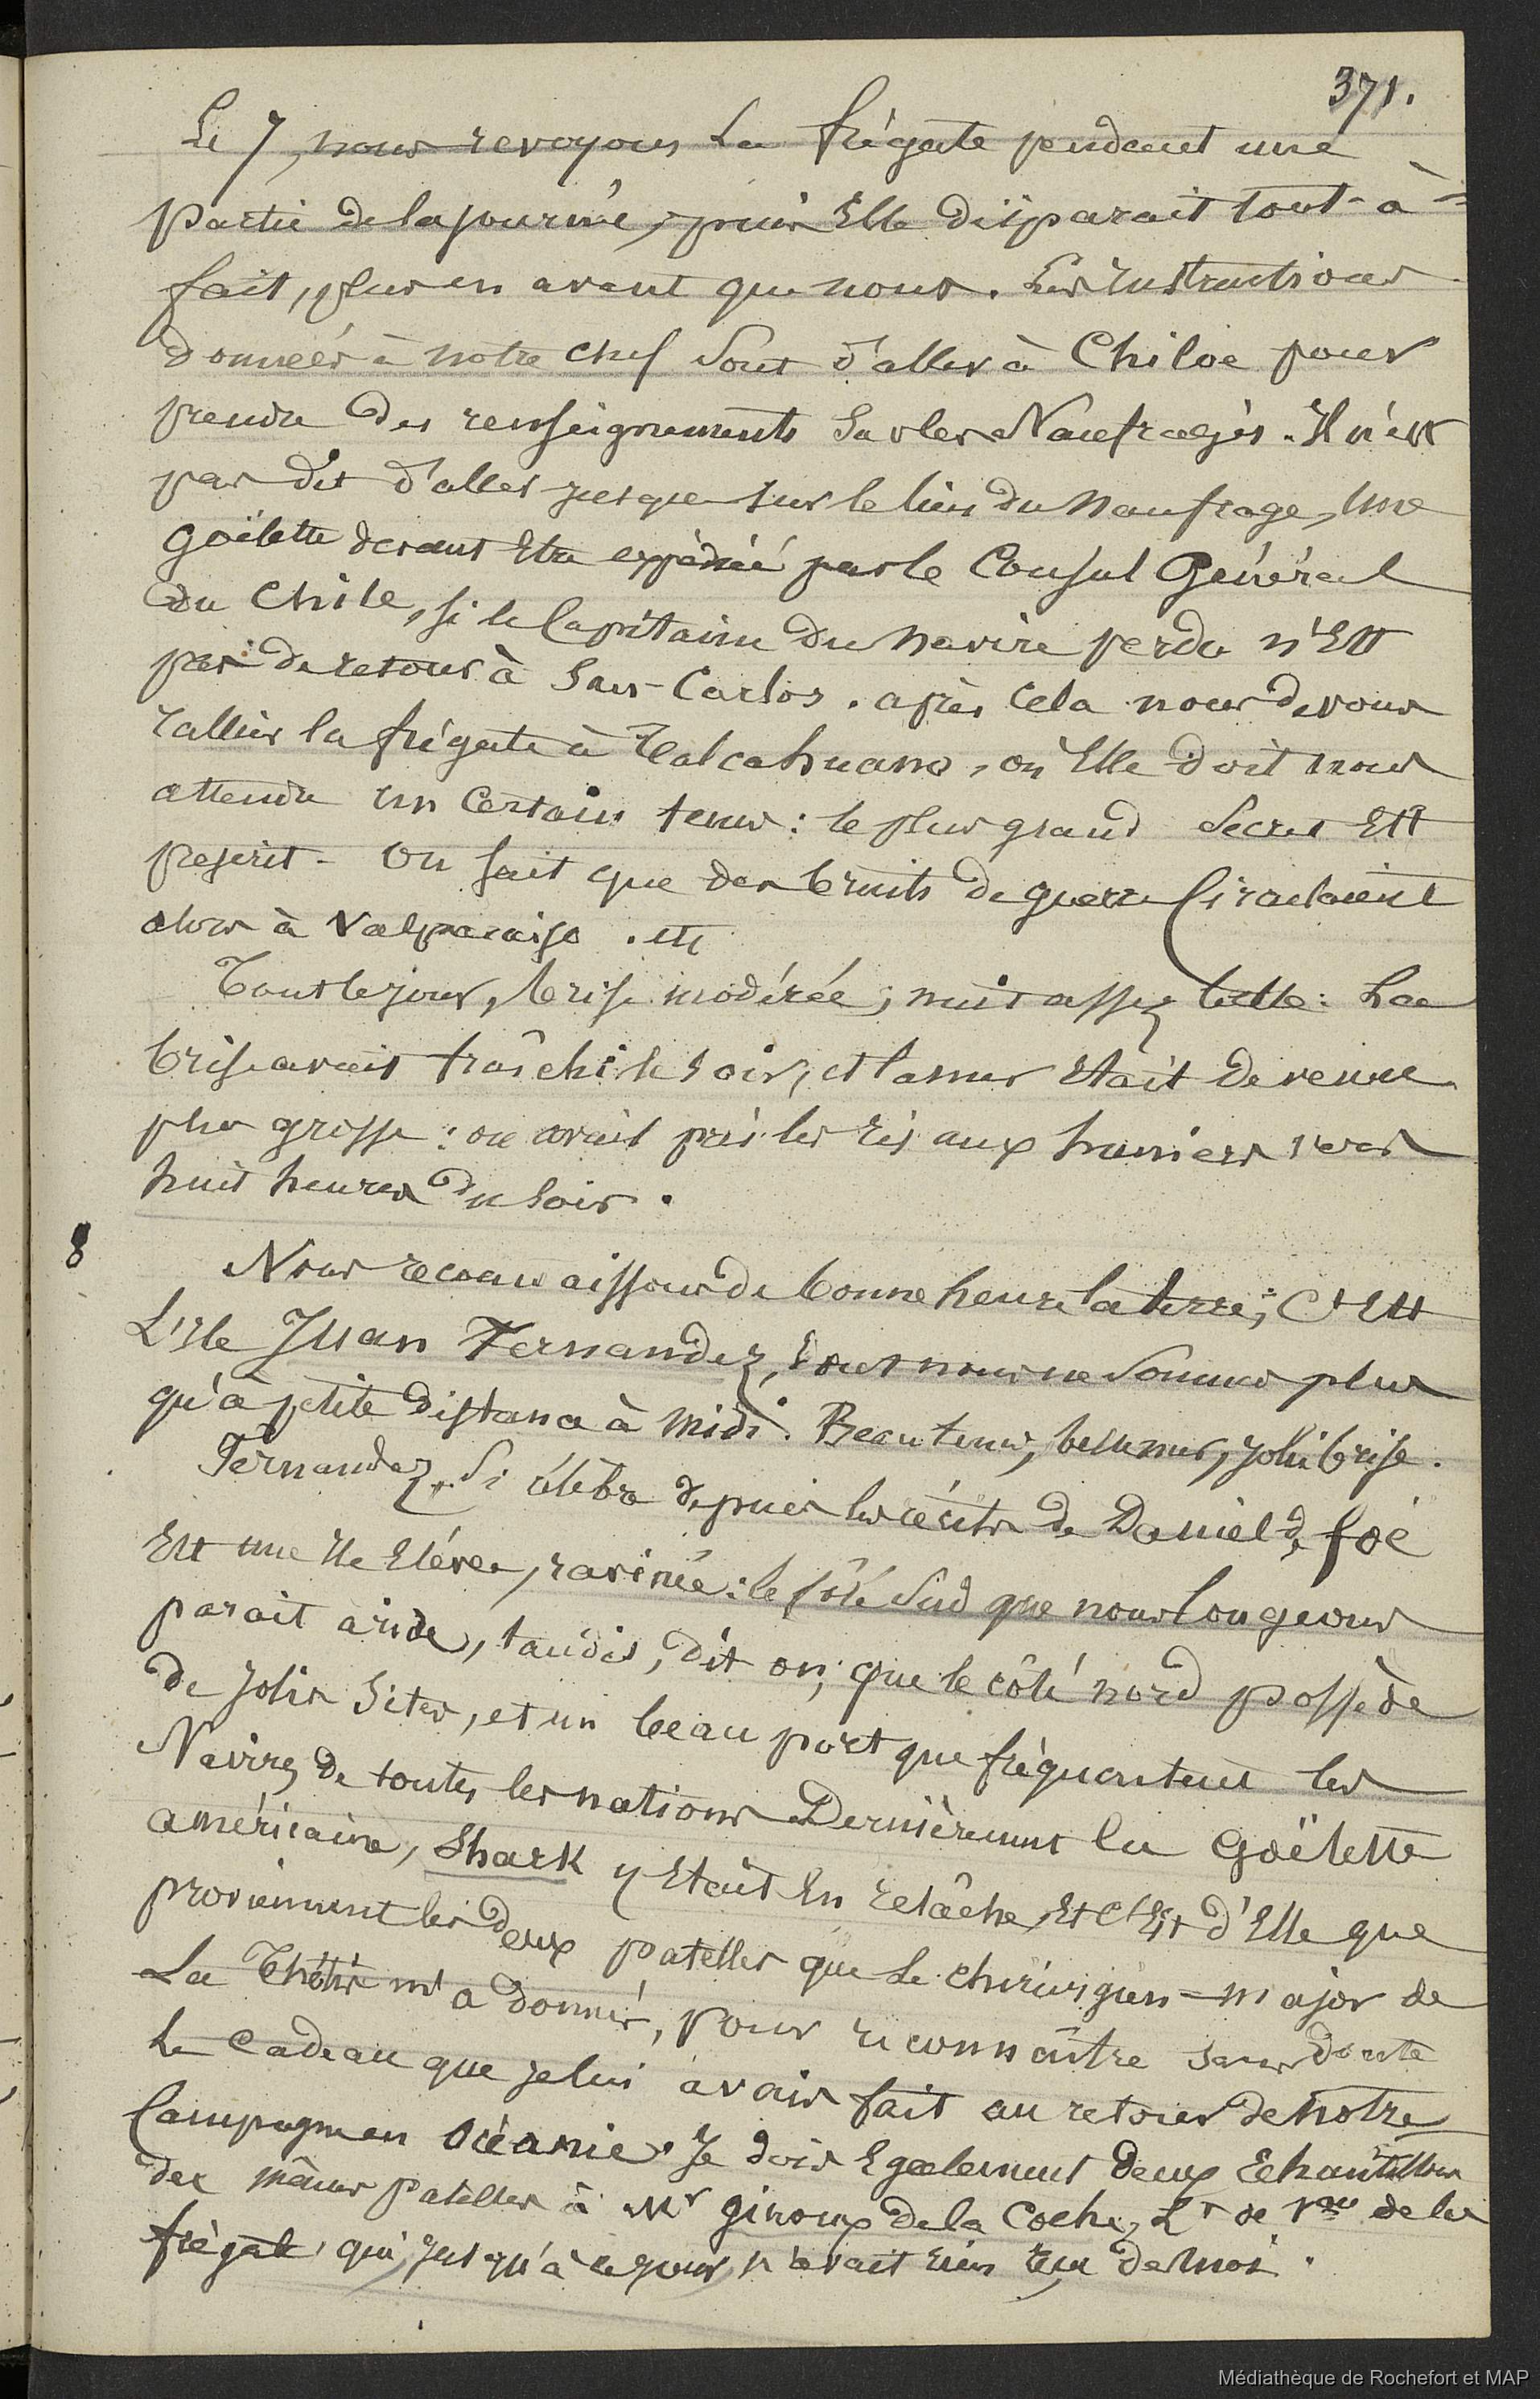 371.
Le 7, nous revoyons la frégate pendant une
partie de la journée, puis Elle disparait tout-à-
fait, plus en avant que nous. Les Instructions
données à notre chef Sont d'aller à Chiloe pour
prendre des renseignements Sur les Naufragés. Il n'est
pas dit d'aller jusque sur le lieu du Naufrage, Une
Goëlette devant Etre expédiée par le Consul Général
du Chile, si le Capitaine du Navire perdu n'Est
pas de retour à San-Carlos. après cela nous devons
rallier la frégate à Talcahuano, où Elle doit nous
attendre un Certain tems : le plus grand Secret Est
prescrit - On sait que des bruits de guerre Circulaient
alors à Valparaiso . etc
Tout le jour, brise modérée ; nuit assez belle : La
brise avait fraîchi le soir, et la mer Etait devenue
plus grosse : on avait pris les ris aux huniers vers
huit heures du soir.
8
Nous reconnaissons de bonne heure la terre ; C'Est
L'Ile Juan Fernandez, dont nous ne Sommes plus
qu'à petite distance à Midi. Beau tems, belle mer, jolie brise.
Fernandez, Si célèbre depuis les récits de Daniel de foé
Est une Ile Elévée, ravinée : le côté Sud que nous longeons
parait aride, tandis, dit on, que le côté nord possède
de jolis Sites, et un beau port que fréquentent les
Navires de toutes les nations Dernièrement la Goëlette
américaine, Shark y Etait En relâche, Et C'Est d'Elle que
proviennent les deux patelles que Le chirurgien-major de
La Thétis m'a donnés, pour reconnaître sans doute
Le Cadeau que je lui avais fait au retour de Notre
Campagne en Océanie. Je dois Egalement deux Echantillons
des mêmes patelles à Mr Giroux de la Coche, Lt de Vau de la
frégate, qui, jusqu'à ce jour, n'avait rien Eu de Moi.
Médiathèque de Rochefort et MAP